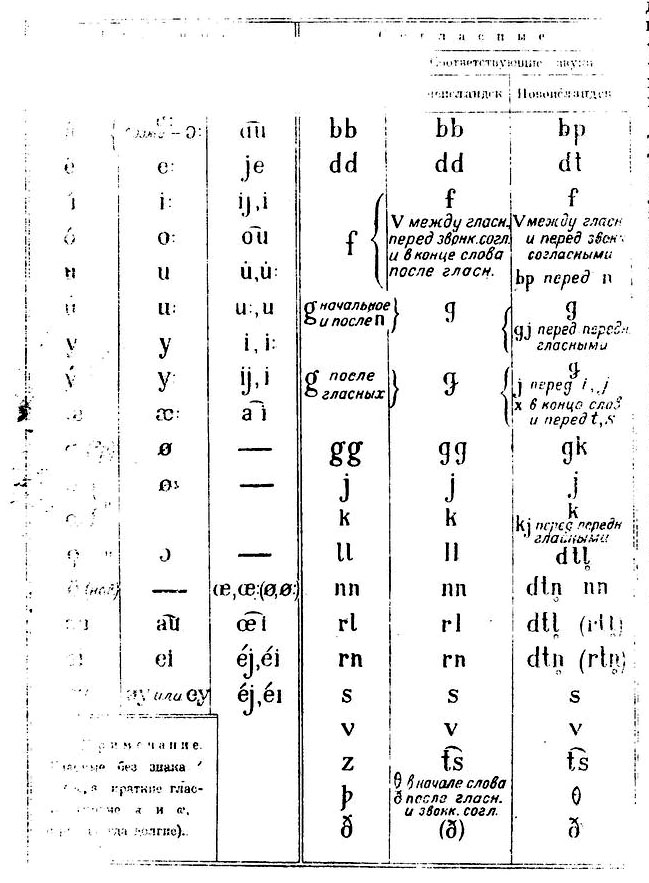 Согласные
Соответствующие звуки
Новоисландск
au bb bb bp
é e: je dd dd dt
í i: ij, i
f f f
V между гласн. перед звонк. согл. и в конце слова после гласн.
V между гласн и перед звонк. согласными
bp перед n
ó o: ou
u u u̇, u̇:
ú u: u:, u
g начальное и после n g g
gj перед передн гласными
y y i, i:
ý y: ij, i
g после гласных ǥ ǥ
j перед i, j
x в конце слов и перед t, s
æ æ: ai
ø — gg gg gk
ø: — j j j
k k k
kj перед передн гласными
ǫ ɔ — ll ll dtl̥
ö (нов) — œ, œ: (ø, ø:) nn nn dtn̥ nn
au au œi rl rl dtl̥ (rtl̥)
ei ei éj, éi rn rn dtn̥ (rtn̥)
ay или ey éj, éi s s s
v v v
Примечание. z ts ts
без знака ´
краткие глас-
æ и œ,
долгие).
þ θ в начале слова ð после гласн. и звонк. согл. θ
ð (ð) ð